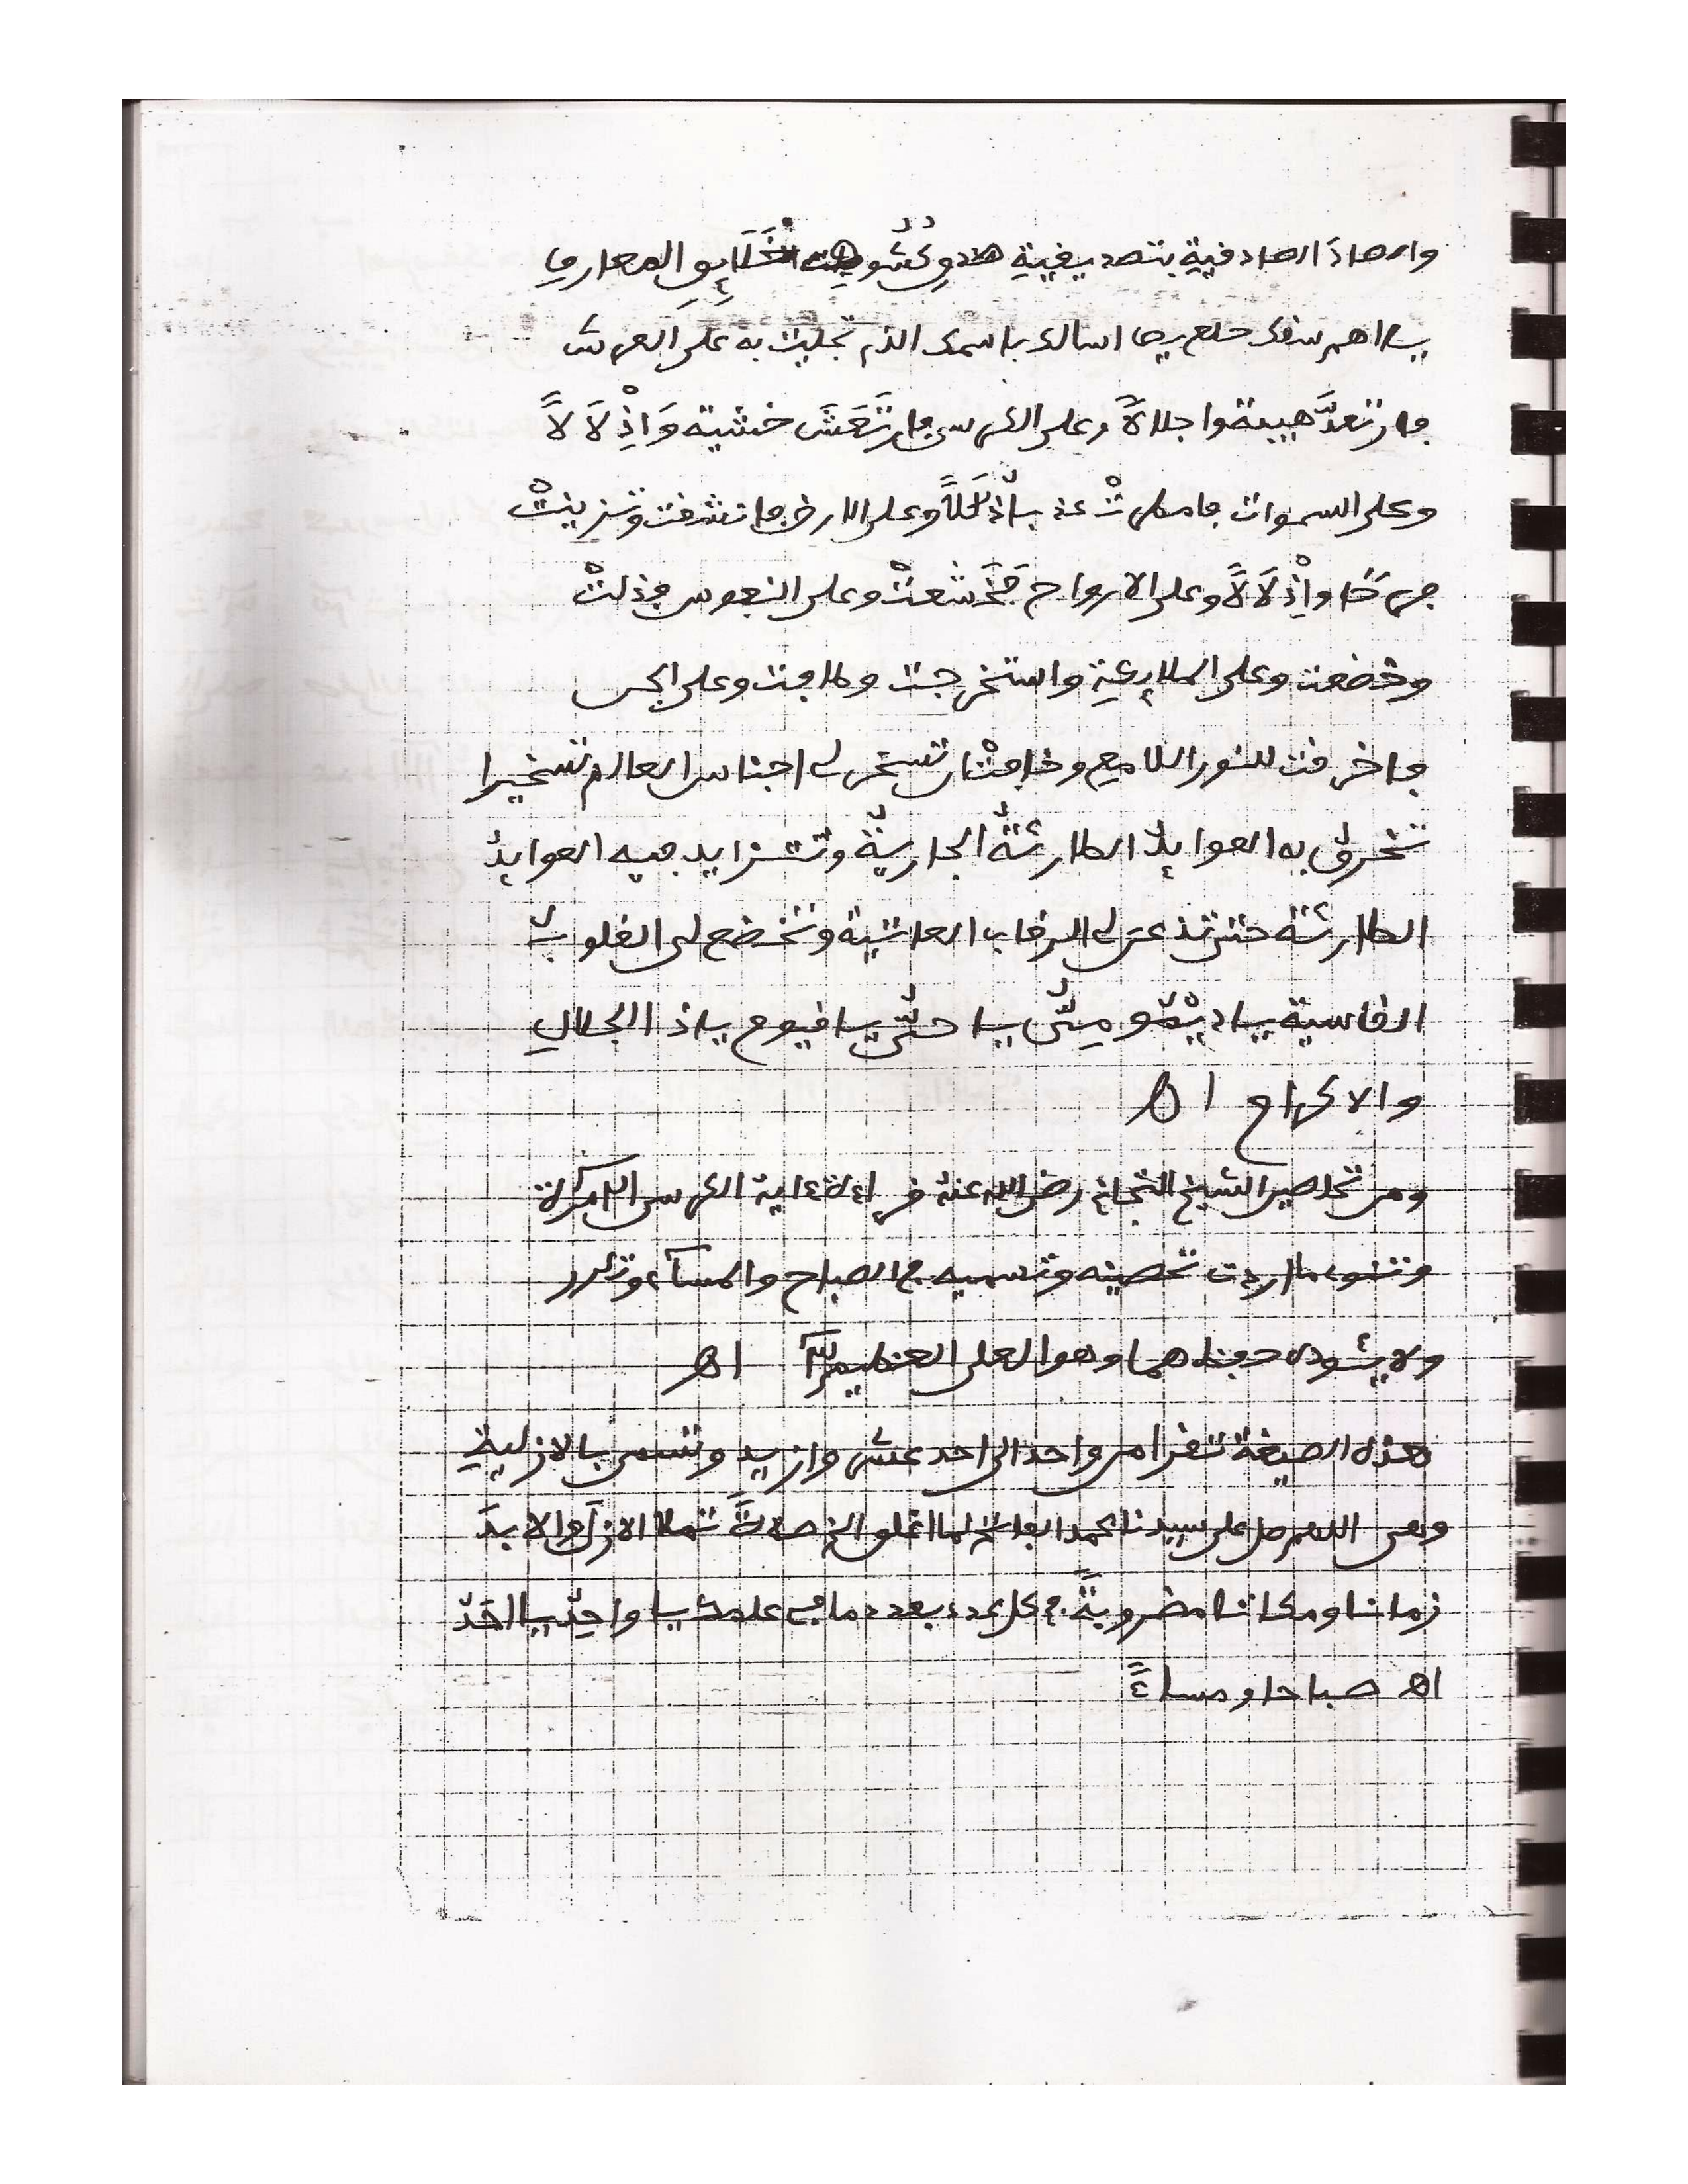 والصاد الصادقية بتصديقية وكشوف المعارف
اسالك باسمك الذي تجليت به على العرش
فارتعد هيبة واجلالا وعلى الكرسي فارتعش خشية وَاذْلَالًا
وعلى السموات وعلى الارض فانشقت وتزينت
فرحًا واذْلَالًا وعلى الارواح فَخَشعتْ وعلى النفوس فذلتْ
وخضعت وعلى الملايكة واستخرجت وطافت وعلى الجن
فاخرقت للنور اللامع وخافت ان تسخر لي اجناس العالم تسخيرا
تخرق به العوايدُ الطارئةُ الجاريةُ وتتزايد فيه العوايدُ
الطارئة حتى تذعن لي الرقاب العاتية وتخضع لي القلوب
القاسية يا ديمومي يا حي يا قيوم ياذا الجلالِ
والاكرام اه
ومن تحاصين الشيخ التجاني رضي الله عنه قراءة ءاية الكرسي
وتنوي ما اردت تحصينه وتسميه في الصباح والمساء وتكرر
ولا يئوده حفظهما وهو العلي العظيم اه
هذه الصيغة تقرا من واحد الى احد عشر وازيد وتسمى بالازلية
وهي اللهم صل على سيدنا محمد الفاتح لما اغلق الخ صلاةً تملا الازل والابد
زمانا ومكانا مضروبةً في كل عدد بعدد ما في علمك يا واحدُ يا احدُ
اه صباحا ومساءً